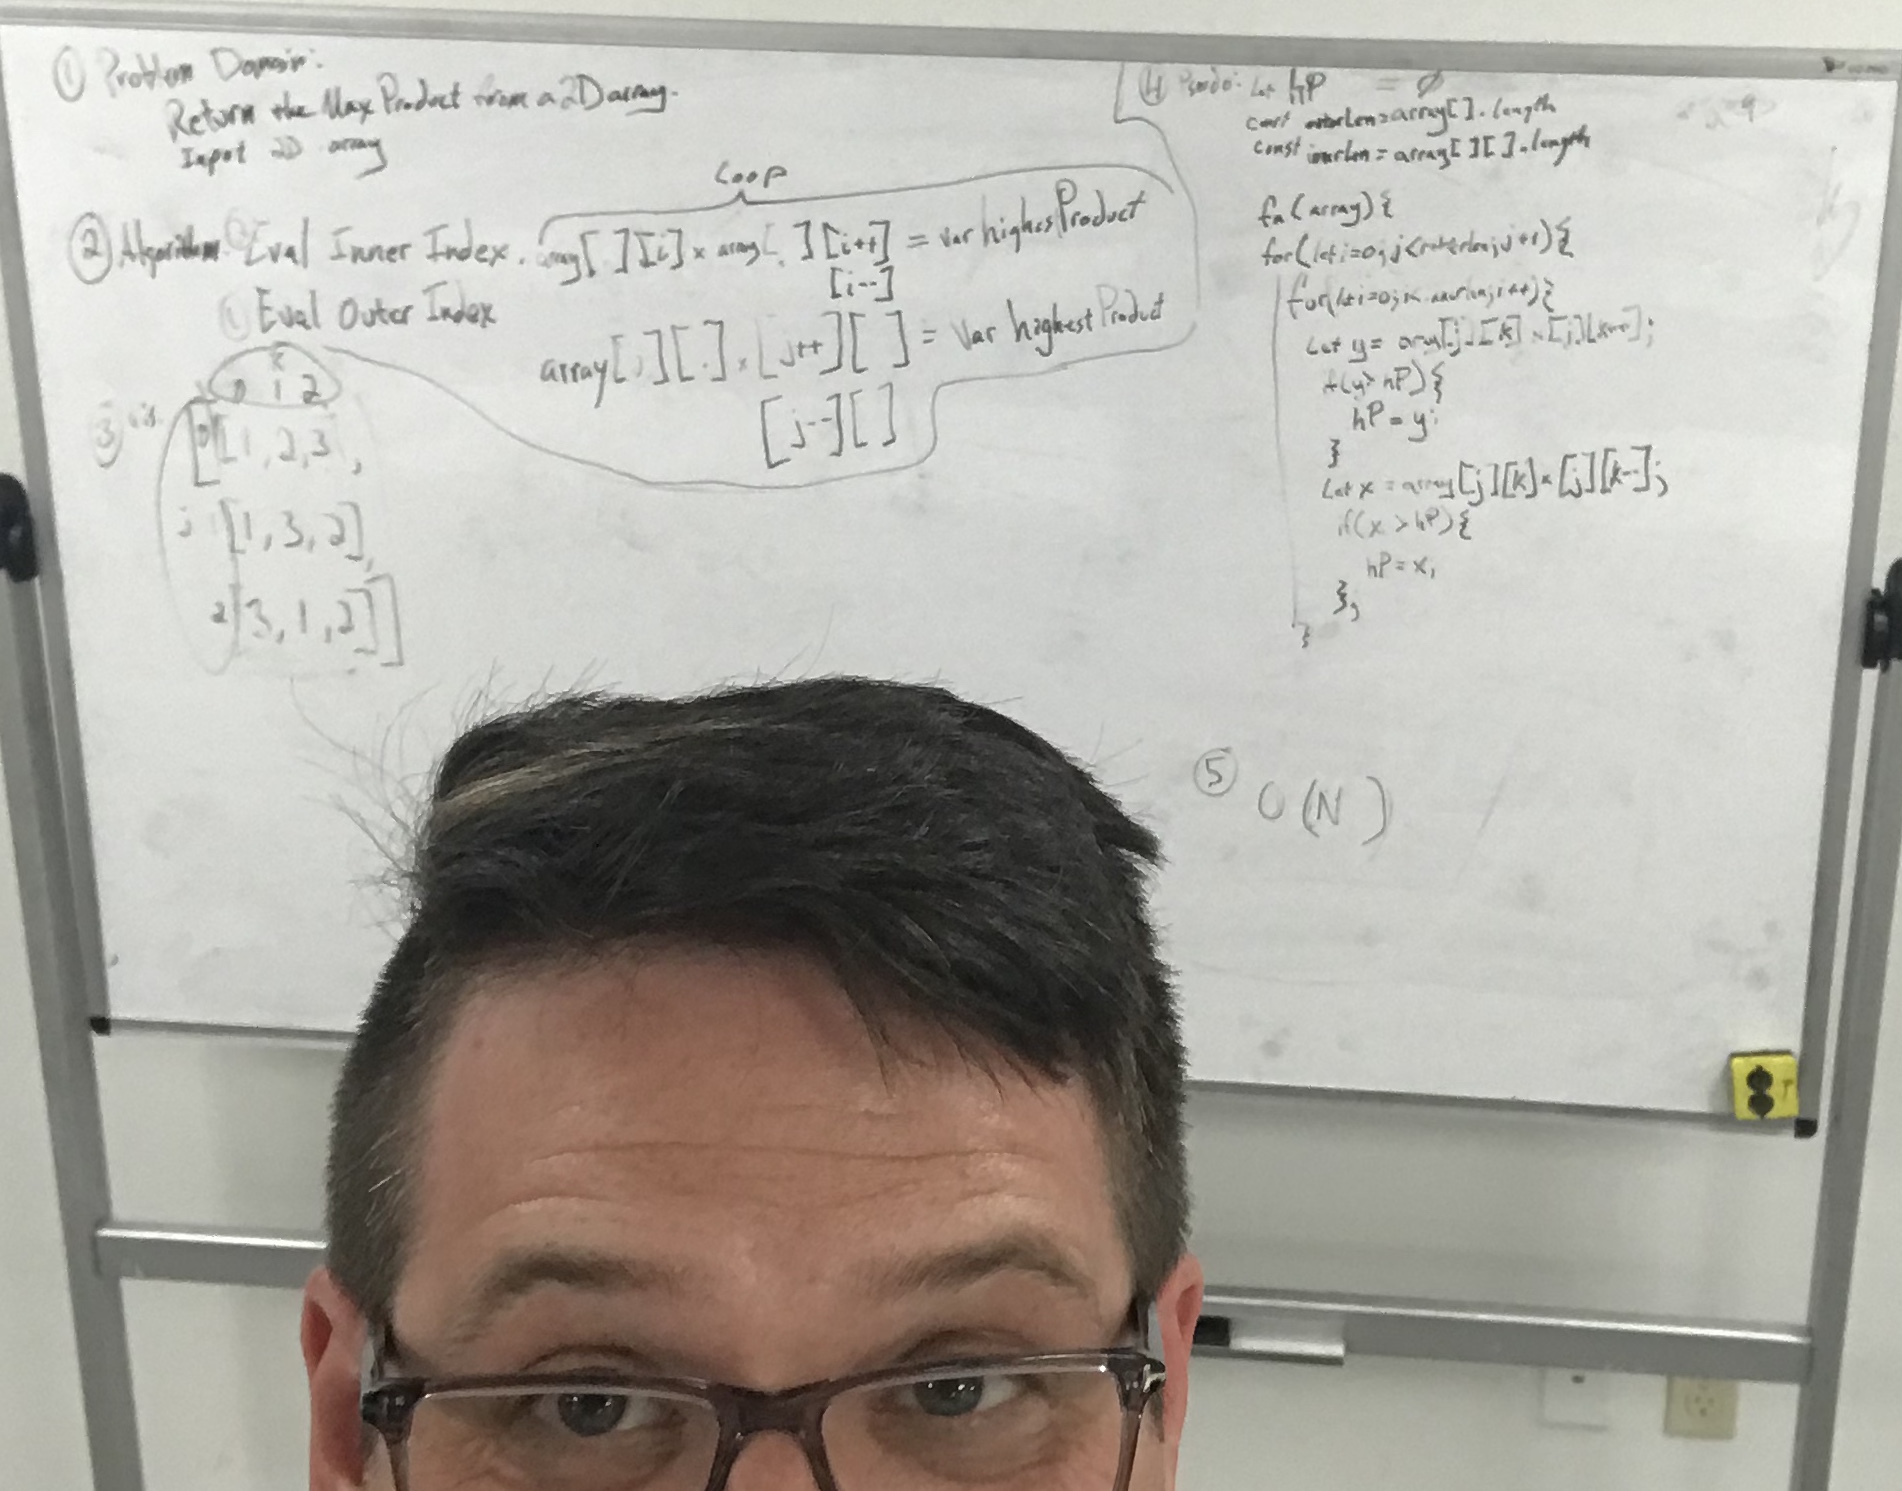 ① Problem Domain:
Return the Max Product from a 2D array.
Input 2D array
Loop
② Algorithm Eval Inner Index. array[ ][i] x array[ ][i++] = var highestProduct
[i--]
① Eval Outer Index
array[j][ ] x [j++][ ] = var highestProduct
[j--][ ]
③ vis.
0 1 2
0 [[1, 2, 3],
j 1 [1, 3, 2],
2 [3, 1, 2]]
④ Psudo: Let hP = ∅
const outerLen = array[ ].length
const innerLen = array[ ][ ].length
fn(array){
for(let i=0; j<outerLen; j++){
for(let i=0; i< innerLen; i++){
Let y = array[j][k] x [j][k++];
if(y> hP){
hP = y;
}
Let x = array[j][k] x [j][k--];
if(x > hP){
hP = x;
};
}
⑤ O(N )